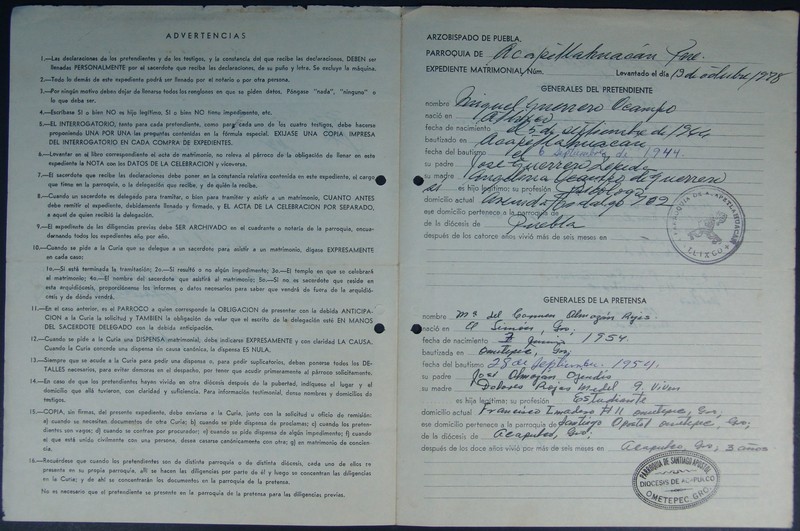 ADVERTENCIAS
1.—Las declaraciones de los pretendientes y de los testigos, y la constancia del que recibe las declaraciones, DEBEN ser
llenadas PERSONALMENTE por el sacerdote que recibe las declaraciones, de su puño y letra. Se excluye la máquina.
2.—Todo lo demás de este expediente podrá ser llenado por el notario o por otra persona.
3.—Por ningún motivo deben dejar de llenarse todos los renglones en que se piden datos. Póngase "nada", "ninguno" o
lo que deba ser.
4.—Escríbase SI o bien NO es hijo legítimo, SI o bien NO tiene impedimento, etc.
5.—EL INTERROGATORIO, tanto para cada pretendiente, como para cada uno de los cuatro testigos, debe hacerse
proponiendo UNA POR UNA las preguntas contenidas en la fórmula especial. EXIJASE UNA COPIA IMPRESA
DEL INTERROGATORIO EN CADA COMPRA DE EXPEDIENTES.
6.—Levantar en el libro correspondiente el acta de matrimonio, no releva al párroco de la obligación de llenar en este
expediente la NOTA con los DATOS DE LA CELEBRACION y viceversa.
7.—El sacerdote que recibe las declaraciones debe poner en la constancia relativa contenida en este expediente, el cargo
que tiene en la parroquia, o la delegación que recibe, y de quién la recibe.
8.—Cuando un sacerdote es delegado para tramitar, o bien para tramitar y asistir a un matrimonio, CUANTO ANTES
debe remitir al expediente, debidamente llenado y firmado, y EL ACTA DE LA CELEBRACION POR SEPARADO,
a aquel de quien recibió la delegación.
9.—El expediente de las diligencias previas DEBE SER ARCHIVADO en el cuadrante o notaría de la parroquia, encua-
dernando todos los expedientes año por año.
10.—Cuando se pide a la Curia que se delegue a un sacerdote para asistir a un matrimonio, dígase EXPRESAMENTE
en cada caso:
1o.—Si está terminada la tramitación; 2o.—Si resultó o no algún impedimento; 3o.—El templo en que se celebrará
el matrimonio; 4o.—El nombre del sacerdote que asistirá al matrimonio; 5o.—Si no es sacerdote que reside en
esta arquidiócesis, proporciónense los informes o datos necesarios para saber que vendrá de fuera de la arquidió-
cesis y de dónde vendrá.
11.—En el caso anterior, es el PARROCO a quien corresponde la OBLIGACION de presentar con la debida ANTICIPA-
CION a la Curia la solicitud y TAMBIEN la obligación de velar que el escrito de la delegación esté EN MANOS
DEL SACERDOTE DELEGADO con la debida anticipación.
12.—Cuando se pide a la Curia una DISPENSA matrimonial, debe indicarse EXPRESAMENTE y con claridad LA CAUSA.
Cuando la Curia concede una dispensa sin causa canónica, la dispensa ES NULA.
13.—Siempre que se acuda a la Curia para pedir una dispensa o, para pedir suplicatorios, deben ponerse todos los DE-
TALLES necesarios, para evitar demoras en el despacho, por tener que acudir primeramente al párroco solicitamente.
14.—En caso de que los pretendientes hayan vivido en otra diócesis después de la pubertad, indíquese el lugar y el
domicilio que allá tuvieron, con claridad y suficiencia. Para información testimonial, dense nombres y domicilios de
testigos.
15.—COPIA, sin firmas, del presente expediente, debe enviarse a la Curia, junto con la solicitud u oficio de remisión:
a) cuando se necesitan documentos de otra Curia; b) cuando se pide dispensa de proclamas; c) cuando los preten-
dientes son vagos; d) cuando se contrae por procurador; e) cuando se pide dispensa de algún impedimento; f) cuando
el que está unido civilmente con una persona, desea casarse canónicamente con otra; g) en matrimonio de concien-
cia.
16.—Recuérdese que cuando los pretendientes son de distinta parroquia o de distinta diócesis, cada uno de ellos re
presenta en su propia parroquia, allí se hacen las diligencias por parte de él y luego se concentran las diligencias
en la Curia; y de ahí se concentrarán los documentos en la parroquia de la pretensa.
No es necesario que el pretendiente se presente en la parroquia de la pretensa para las diligencias previas.
ARZOBISPADO DE PUEBLA.
PARROQUIA DE Acapetlahuacán Pue.
EXPEDIENTE MATRIMONIAL Núm. Levantado el día 13 de octubre/1978
GENERALES DEL PRETENDIENTE
nombre Miguel Guerrero Ocampo
nació en Atlixco
fecha de nacimiento de septiembre de 1944
bautizado en Acapetlahuacan
fecha del bautismo 6 septiembre de 1944.
su padre José Guerrero
su madre Angelina Ocampo de guerrero
es hijo legítimo; su profesión
domicilio actual Hidalgo 702
ese domicilio pertenece a la parroquia de
de la diócesis de Puebla
después de los catorce años vivió más de seis meses en
PARROQUIA DE ACAPETLAHUACAN
GENERALES DE LA PRETENSA
nombre Ma. del Carmen Almazán Rojas.
nació en El Limón, Gro.
fecha de nacimiento 7 Junio 1954.
bautizada en Ometepec, Gro;
fecha del bautismo 28 de Septiembre. 1954.
su padre José Almazán
su madre Dolores Rojas
es hija legítima; su profesión Estudiante
domicilio actual Francisco I madero # 11 ometepec, Gro;
ese domicilio pertenece a la parroquia de Santiago Apostol ometepec, Gro;
de la diócesis de Acapulco, Gro.
después de los doce años vivió más de seis meses en Acapulco, Gro, 3 años
PARROQUIA DE SANTIAGO APOSTOL
DIOCESIS DE ACAPULCO
OMETEPEC, GRO.